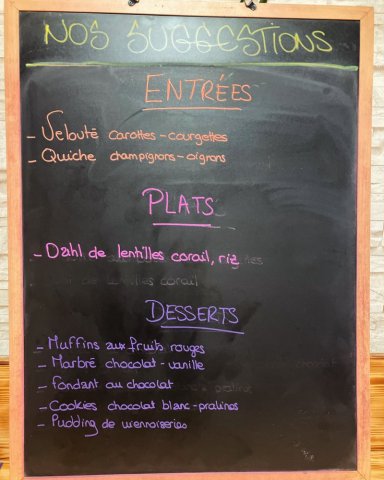 NOS SUGGESTIONS
ENTRÉES
- Velouté carottes-courgettes
- Quiche champignons-oignons
PLATS
- Dahl de lentilles corail, riz
de lentilles corail
DESSERTS
- Muffins aux fruits rouges
- Marbré chocolat-vanille
- fondant au chocolat
- Cookies chocolat blanc-pralines
- Pudding de viennoiseries